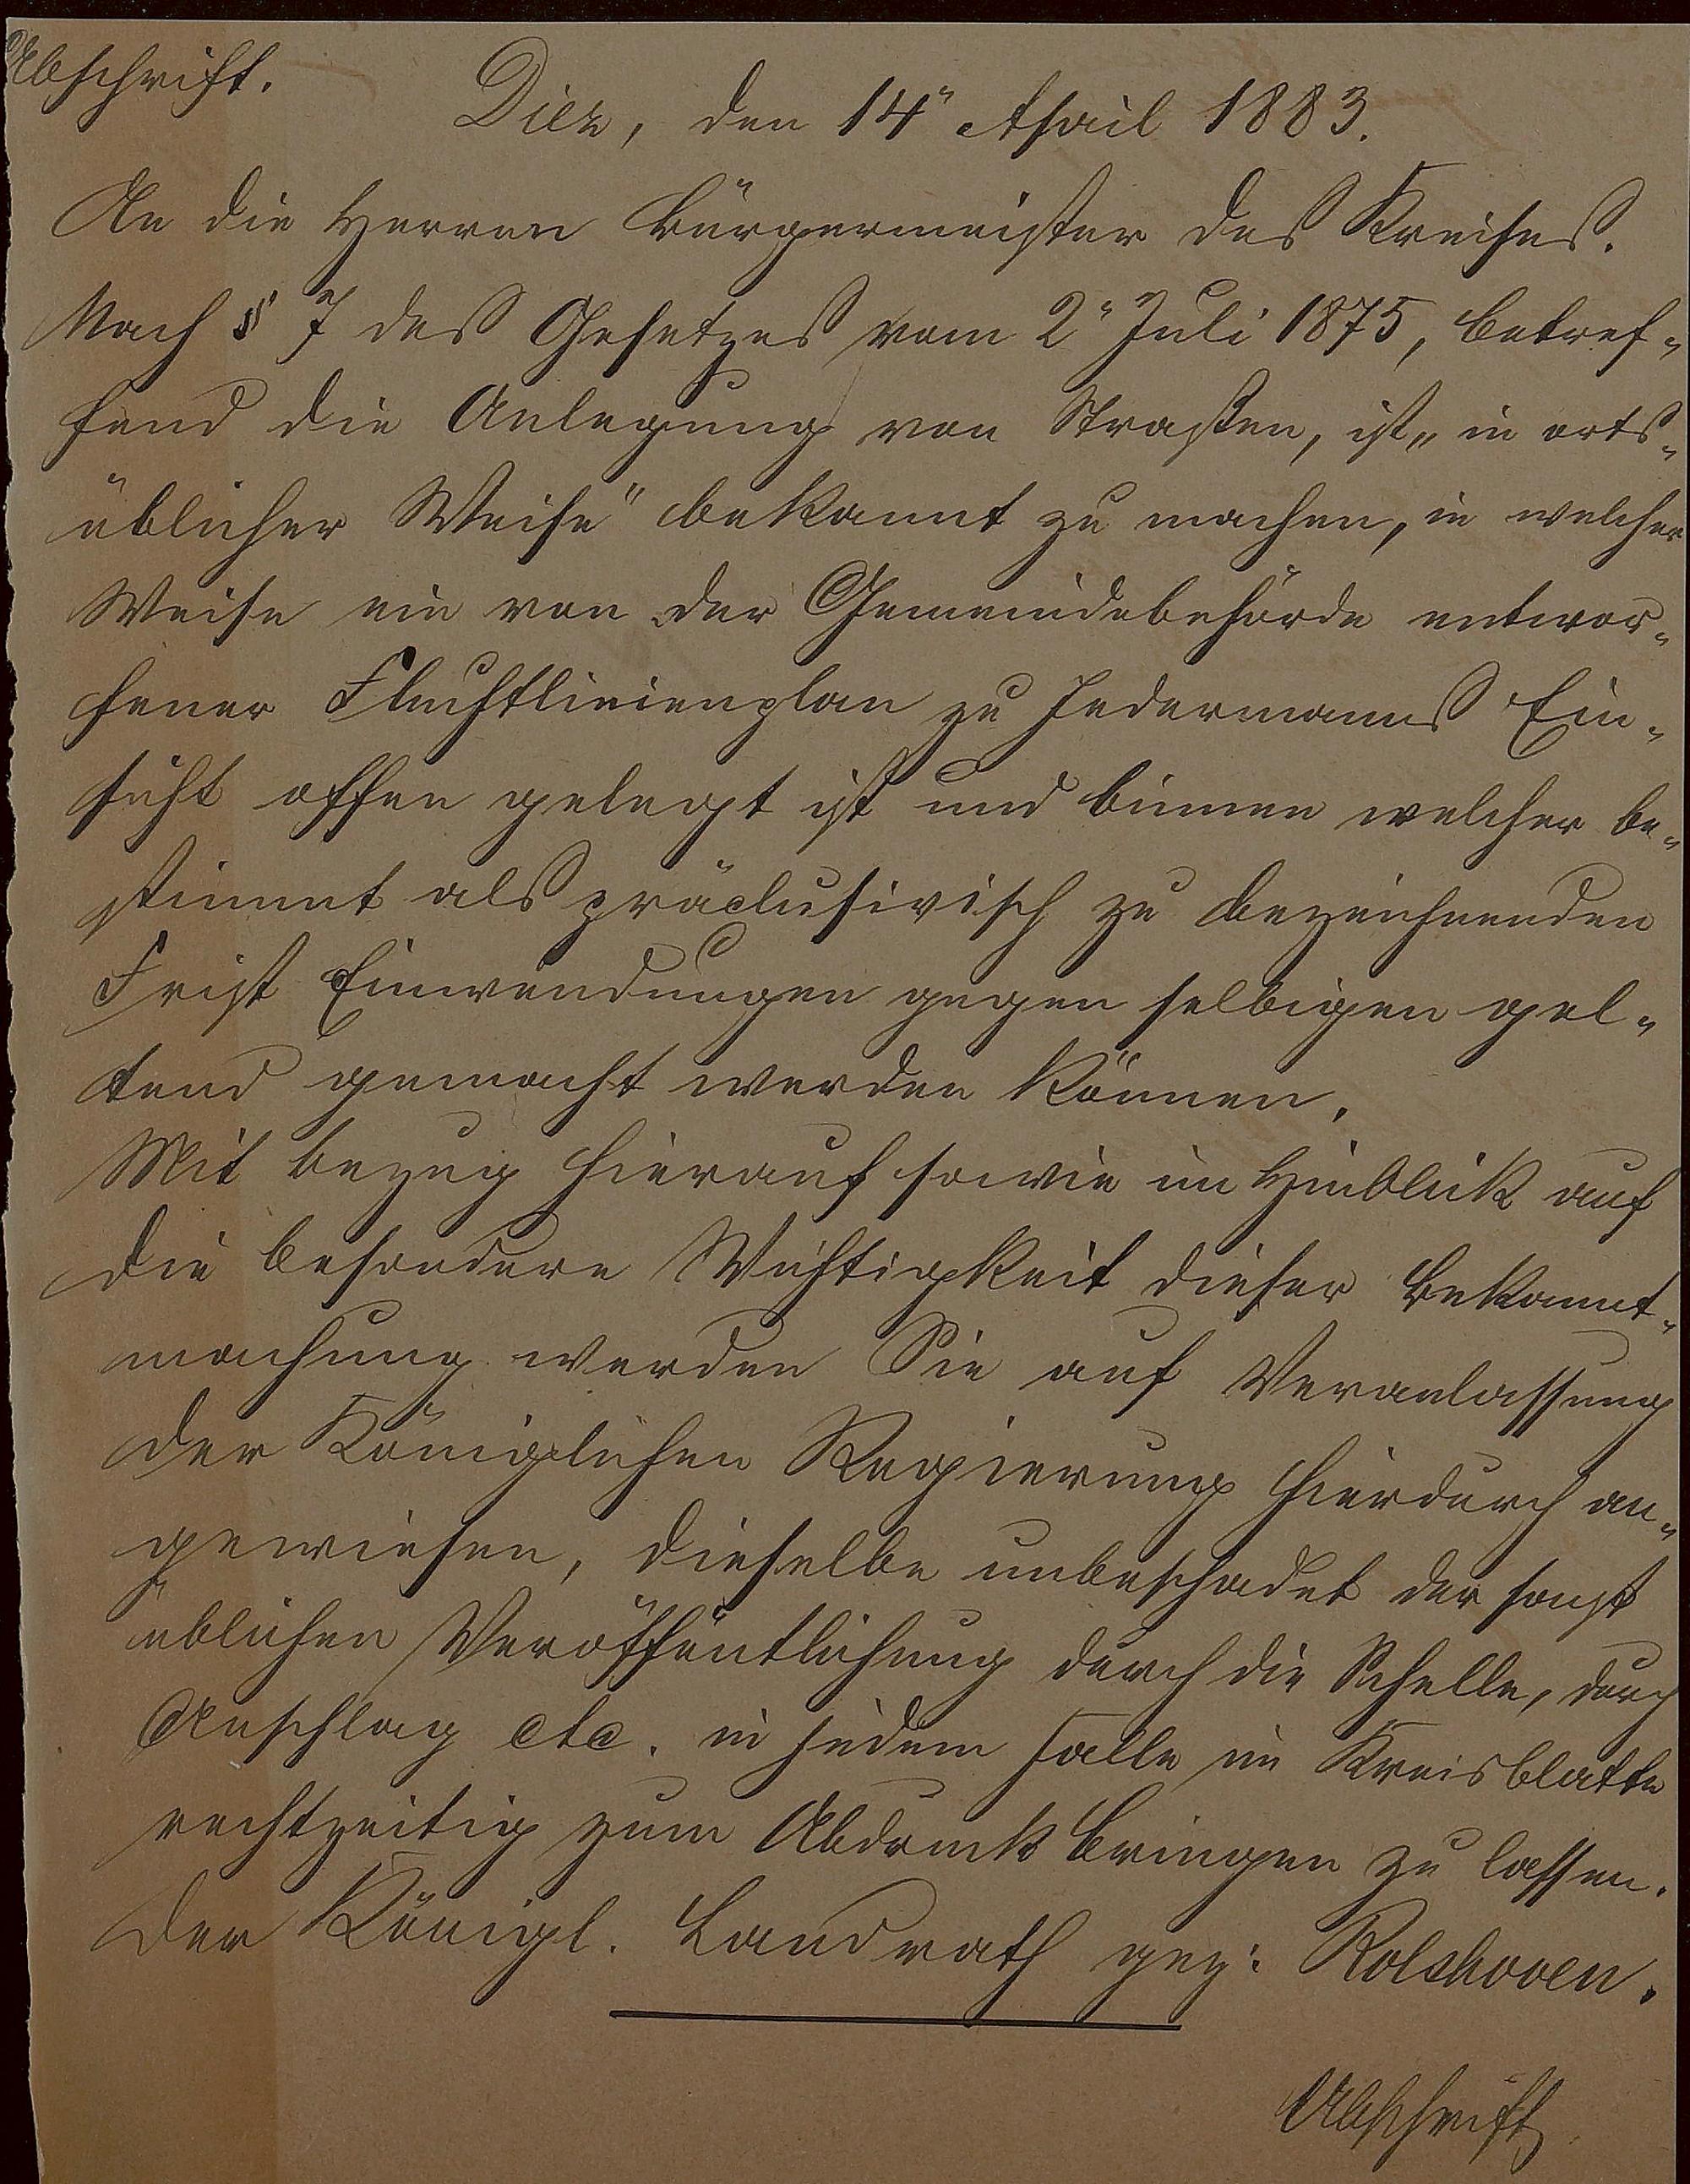 Abschrift.
Diez, den 14" April 1883.
An die Herren Bürgermeister des Kreises.
Nach § 7 des Gesetzes vom 2" Juli 1875, betref-
fend die Anlegung von Straßen, ist „in orts-
üblicher Weise" bekannt zu machen, in welcher
Weise ein von der Gemeindebehörde entwor-
fener Fluchtlinienplan zu Jedermanns Ein-
sicht offen gelegt ist und binnen welcher be-
stimmt als präclusivisch zu bezeichnenden
Frist Einwendungen gegen selbigen gel-
tend gemacht werden können.
Mit Bezug hierauf sowie im Hinblick auf
die besondere Wichtigkeit dieser Bekannt-
machung werden Sie auf Veranlassung
der Königlichen Regierung hierdurch an-
gewiesen, dieselbe unbeschadet der sonst
üblichen Veröffentlichung durch die Schelle, durch
Anschlag etc. in jedem Falle im Kreisblatte
rechtzeitig zum Abdruck bringen zu lassen.
Der Königl. Landrath gez: Rolshoven.
Abschrift